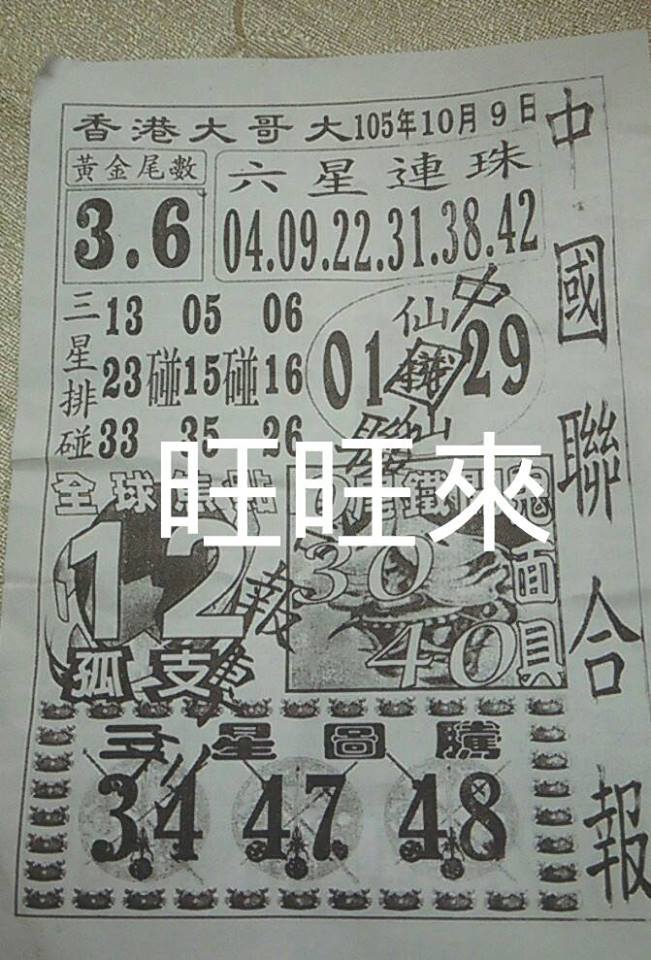 香港大哥大105年10月9日
中國聯合報
黃金尾數
3.6
六星連珠
04.09.22.31.38.42
三星排碰
13 05 06
23碰15碰16
33 35 26
01 29
仙
中國聯合報
旺旺來
全球焦點
12
孤支
鐵
面具
30
40
星圖騰
34 47 48